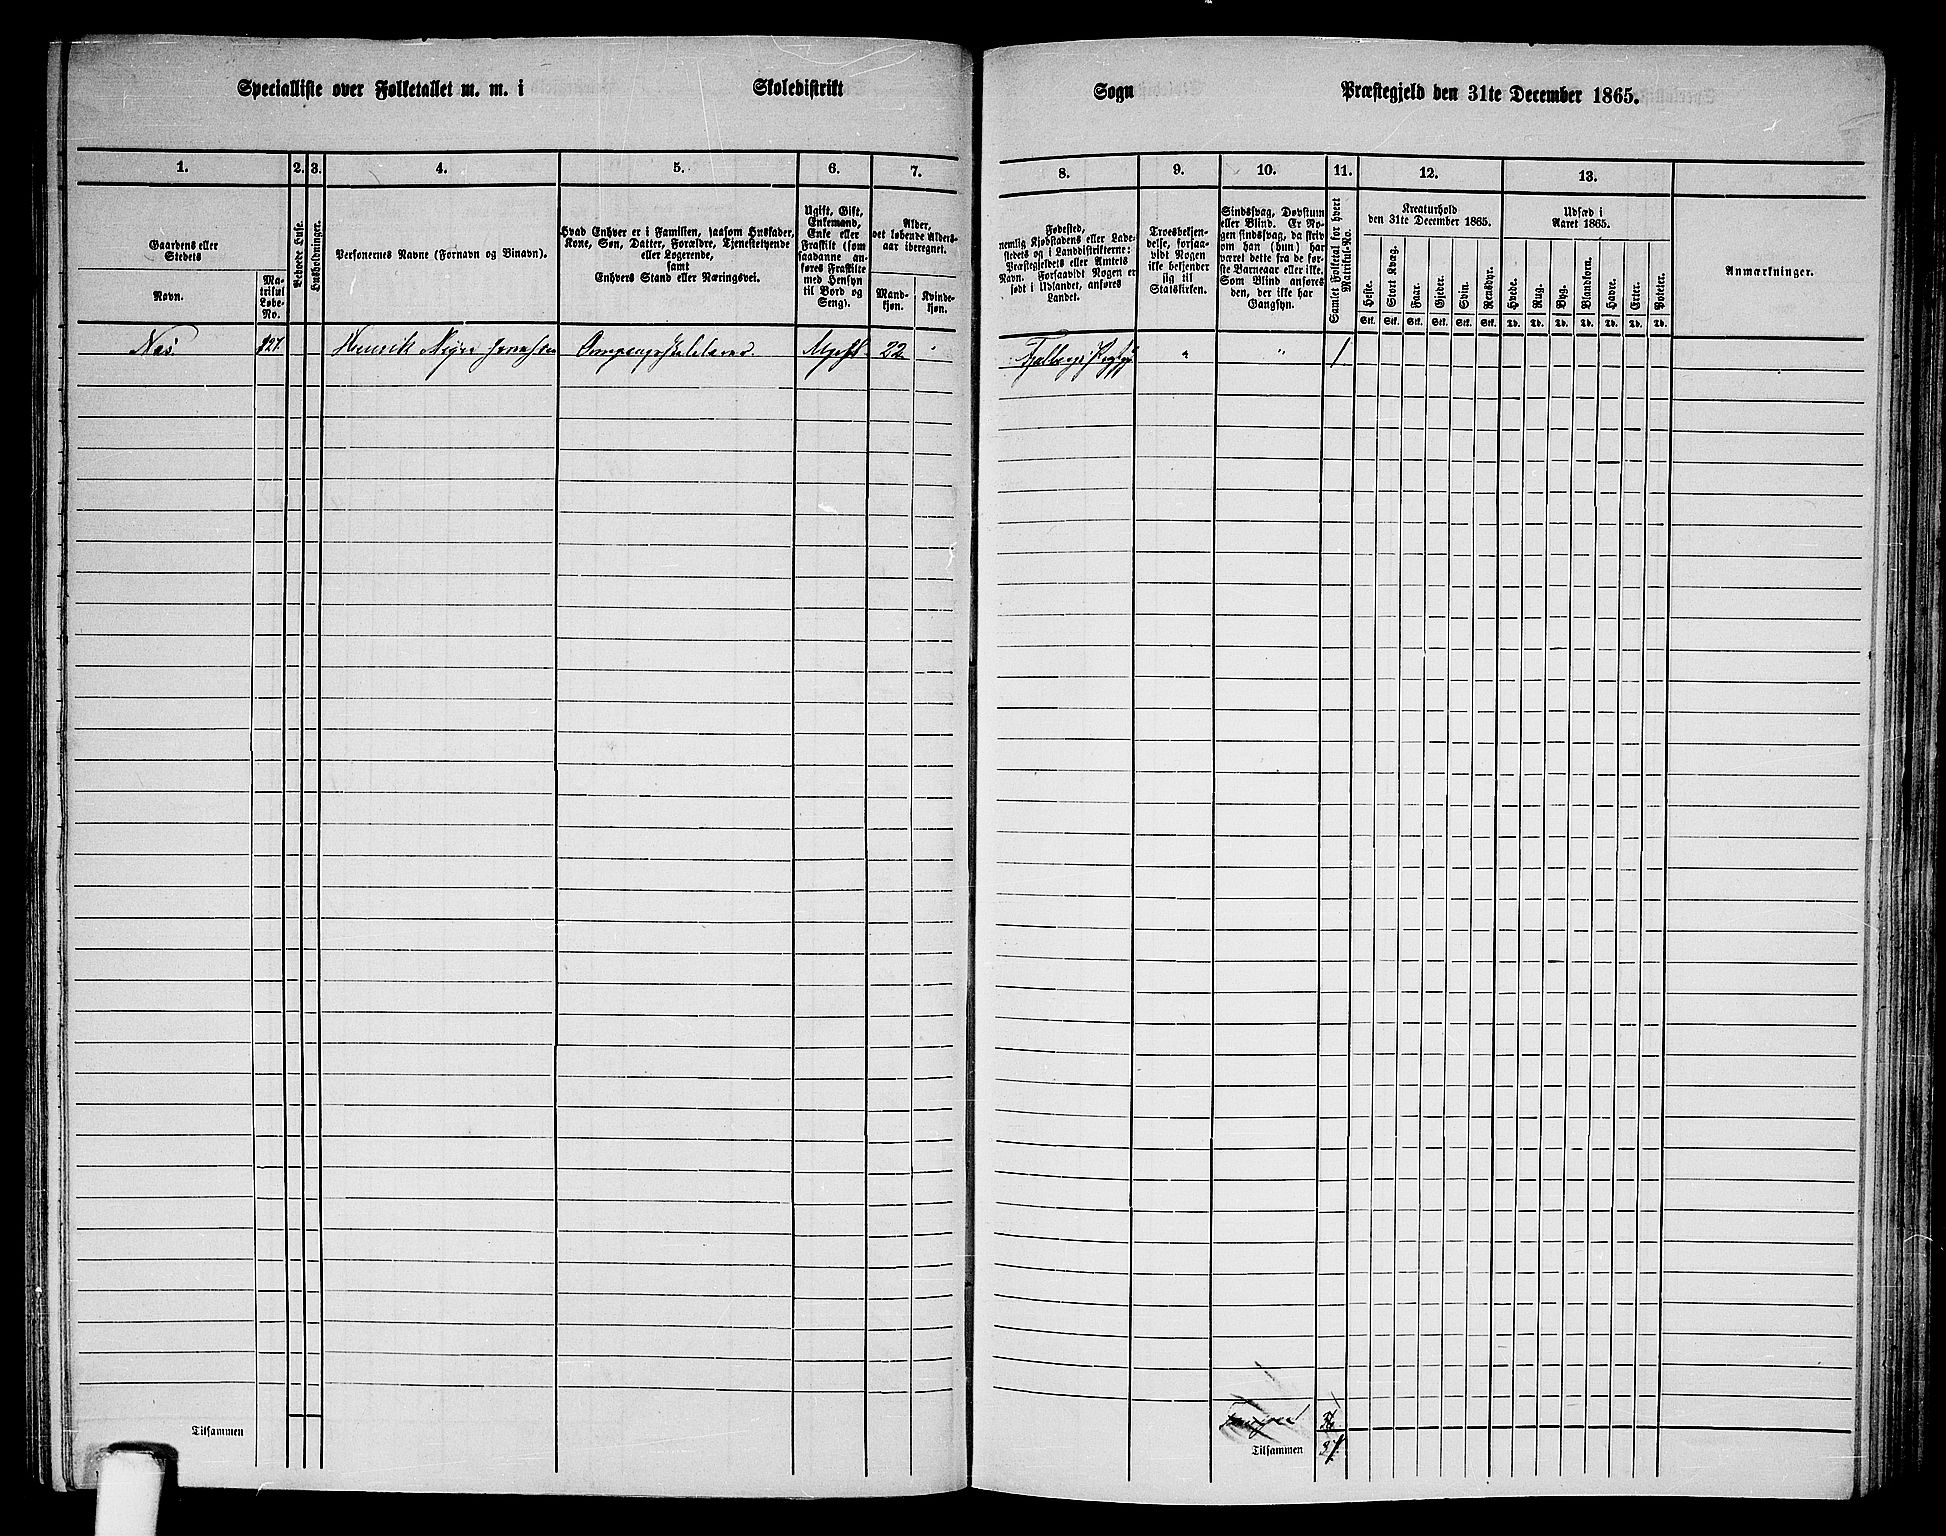 Specialliste over Folketallet m. m. i Skoledistrikt Sogn Præstegjeld den 31te December 1865.
1. 2. 3. 4. 5. 6. 7. 8. 9. 10. 11. 12. 13.
Gaardens eller
Stedets
Navn.
Ma-
trikul
Løbe-
No.
Beboede Huse.
Husholdninger.
Personernes Navne (Fornavn og Binavn).
Hvad Enhver er i Familien, saasom Husfader,
Kone, Søn, Datter, Forældre, Tjenestetyende
eller Logerende,
samt
Enhvers Stand eller Næringsvei.
Ugift, Gift,
Enkemand,
Enke eller
Fraskilt (som
saadanne an-
føres Fraskilte
med Hensyn
til Bord og
Seng).
Alder,
det løbende Alders-
aar iberegnet.
Mand-
kjøn.
Kvinde-
kjøn.
Fødested,
nemlig Kjøbstadens eller Lade-
stedets og i Landdistrikterne:
Præstegjeldets eller Amtets
Navn. Forsaavidt Nogen er
født i Udlandet, anføres
Landet.
Troesbekjen-
delse, forsaa-
vidt Nogen
ikke bekjender
sig til
Statskirken.
Sindssvag, Døvstum
eller Blind. Er No-
gen sindssvag, da skriv
om han (hun) har
været dette fra de før-
ste Barneaar eller ikke.
Som Blind anføres
den, der ikke har
Gangsyn.
Samlet Folketal for hvert
Matrikul-No.
Kreaturhold
den 31te December 1865.
Heste. Stort Kvæg. Faar. Gjeder. Svin. Rensdyr.
Stk. Stk. Stk. Stk. Stk. Stk.
Udsæd i
Aaret 1865.
Hvede. Rug. Byg. Blandkorn. Havre. Erter. Poteter.
Td. Td. Td. Td. Td. Td. Td.
Anmærkninger.
Næs 127. Henrik Omgangsskolelærer. Ugift 22 " " " 1
Tilsammen Tilsammen 37